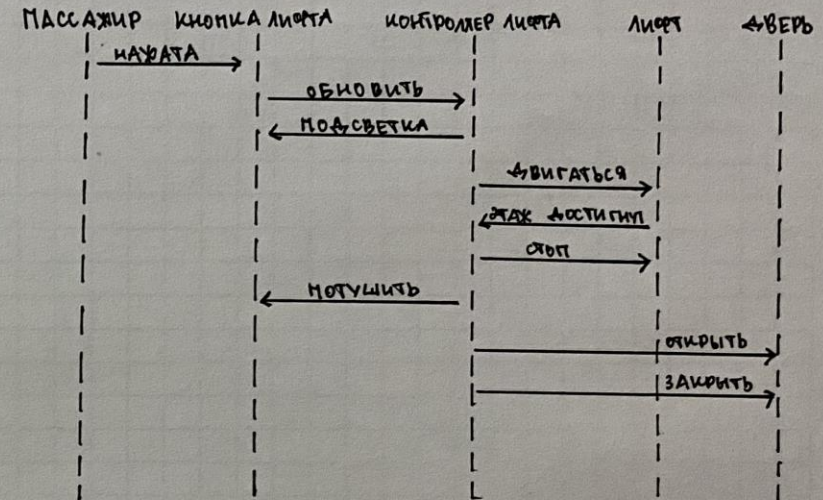 ПАССАЖИР КНОПКА ЛИФТА КОНТРОЛЛЕР ЛИФТА ЛИФТ ДВЕРЬ
НАЖАТА
ОБНОВИТЬ
ПОДСВЕТКА
ДВИГАТЬСЯ
ЭТАЖ ДОСТИГНУЛ
СТОП
ПОТУШИТЬ
ОТКРЫТЬ
ЗАКРЫТЬ